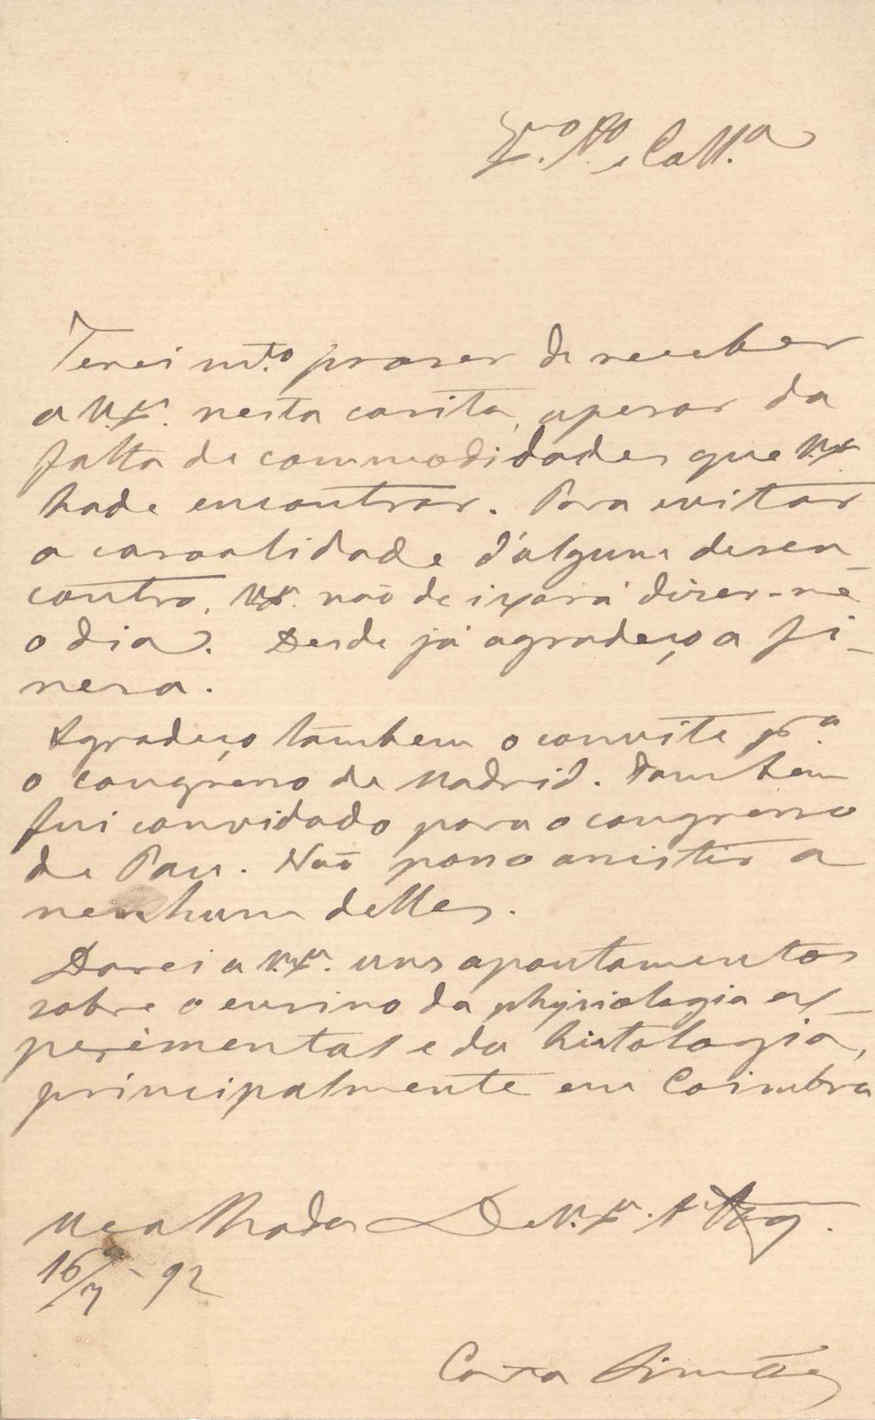 Terei mt.º praser de receber
a V. Ex.ª nesta casita, apesar da
falta de commodidades que V. Ex.ª
hade encontrar. Para evitar
a casoalidade d'algum desen-
contro, V. Ex.ª não deixará dizer-me
o dia. Desde já agradeço a fi-
nesa.
Agradeço tambem o convite pr.ª
o congresso de Madrid. Tambem
fui convidado para o congresso
de Pau. Não posso assistir a
nenhum delles.
Darei a V. Ex.ª uns apontamentos
sobre o ensino da physiologia ex-
perimental e da histologia,
principalmente em Coimbra
Mealhada De V. Ex.ª
16/7-92
Costa Simões